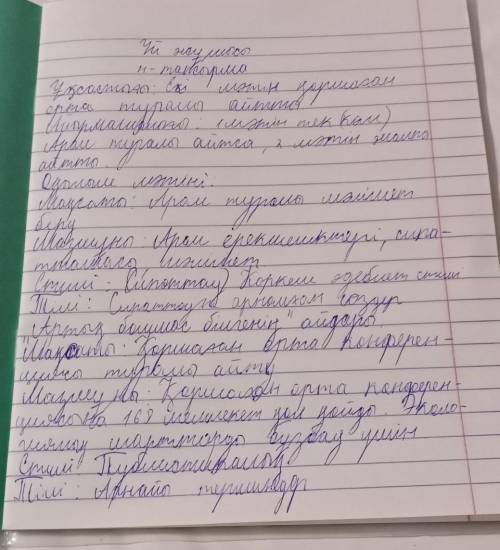 Үй жұмысы
н-тапсырма
Ұқсастығы: Екі мәтін қоршаған
орта туралы айтты
Айырмашылығы: 1 мәтін тек (
Арал туралы айтса, 2 мәтін жалпы
айтты
Одалыше мәтіні.
Мақсаты: Арал туралы мәлімет
беру
Мазмұны: Арал ерекшеліктері, сипа-
тталмасы
Стилі: (Сипаттау) Көркем әдебиет стилі
Тілі: Сипаттауға арналған сөздер
"Артық болмас білгенің" айдары.
Мақсаты: Қоршаған орта конферен-
циясы туралы айту
Мазмұны: Қоршаған орта конферен-
циясына 168 мемлекет қол қойды. Эколо-
гиялық шарттарды бұзбау үшін
Стилі Публицистикалық
Тілі: Арнайы терминдер